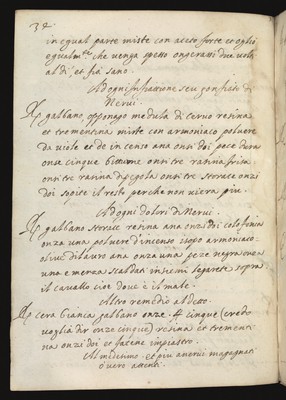 32
in egual parte miste con aceto forte et oglio
egualm.te che venga spetto ongerassi due volte
al di, et fia sano
Ad ogni Infiatione seu gonfiati di
Nervi
galbano, opponago medula di cervo resina
et trementina miste con armoniaco polvere
da viole et de incenso ana onsi doi pece dura
onsa cinque bittume onsi tre rasina frita
onsi tre rasina di pegola onsi tre storace onzi
doi sopite il resto perche non viera piu.
Ad ogni dolori di Nervi
galbano storace resina ana onzi doi
onza una polvere d'incenso isopo armoniaco.
olive di lauro ana onza una peze negra onza
una e meza scaldati insiemi legarete sopra
il cavallo cioe dove è il male.
Altro remedio al detto
cera bianca galbano onze. 4 cinque (credo
voglia dir onze cinque) resina et trementi
na onzi doi et fatene inpiastro.
Al medesimo. et piu avertir
overo attenti.